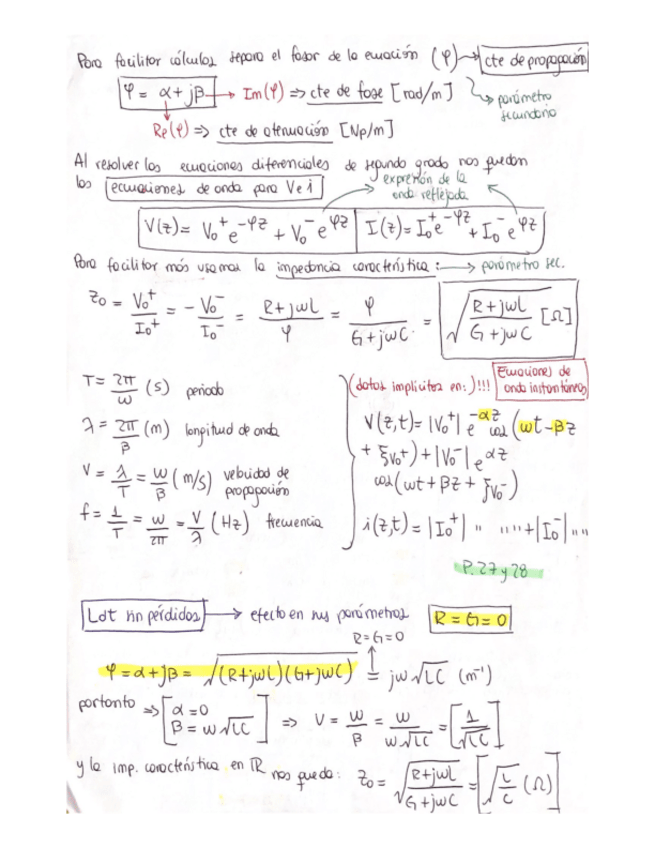 Para facilitar cálculos separo el fasor de la ecuación (φ) → cte de propagación
φ = α + jβ → Im(φ) => cte de fase [rad/m] → parámetro secundario
Re(φ) => cte de atenuación [Np/m]
Al resolver las ecuaciones diferenciales de segundo grado nos quedan
las ecuaciones de onda para V e i
expresión de la onda reflejada
V(z) = V₀⁺ e^-φz + V₀⁻ e^φz
I(z) = I₀⁺ e^-φz + I₀⁻ e^φz
Para facilitar más usamos la impedancia característica: → parámetro sec.
Z₀ = V₀⁺/I₀⁺ = - V₀⁻/I₀⁻ = R+jωL/φ = φ/G+jωC = √(R+jωL/G+jωC) [Ω]
T = 2π/ω (s) periodo
λ = 2π/β (m) longitud de onda
V = λ/T = ω/β (m/s) velocidad de propagación
f = 1/T = ω/2π = V/λ (Hz) frecuencia
(datos implícitos en:)!!! Ecuaciones de onda instantáneas
V(z,t) = |V₀⁺| e^-αz cos(ωt-βz
+ ξv₀⁺) + |V₀⁻| e^αz
cos(ωt + βz + ξv₀⁻)
i(z,t) = |I₀⁺| " " " " + |I₀⁻| " "
P. 27 y 28
LdT sin pérdidas → efecto en sus parámetros R = G = 0
R=G=0
φ = α + jβ = √(R+jωL)(G+jωC) = jω√LC (m⁻¹)
por tanto => [α = 0
β = ω√LC] => V = ω/β = ω/ω√LC = [1/√LC]
y la imp. característica en ℝ nos queda: Z₀ = √(R+jωL/G+jωC) = [√(L/C) (Ω)]